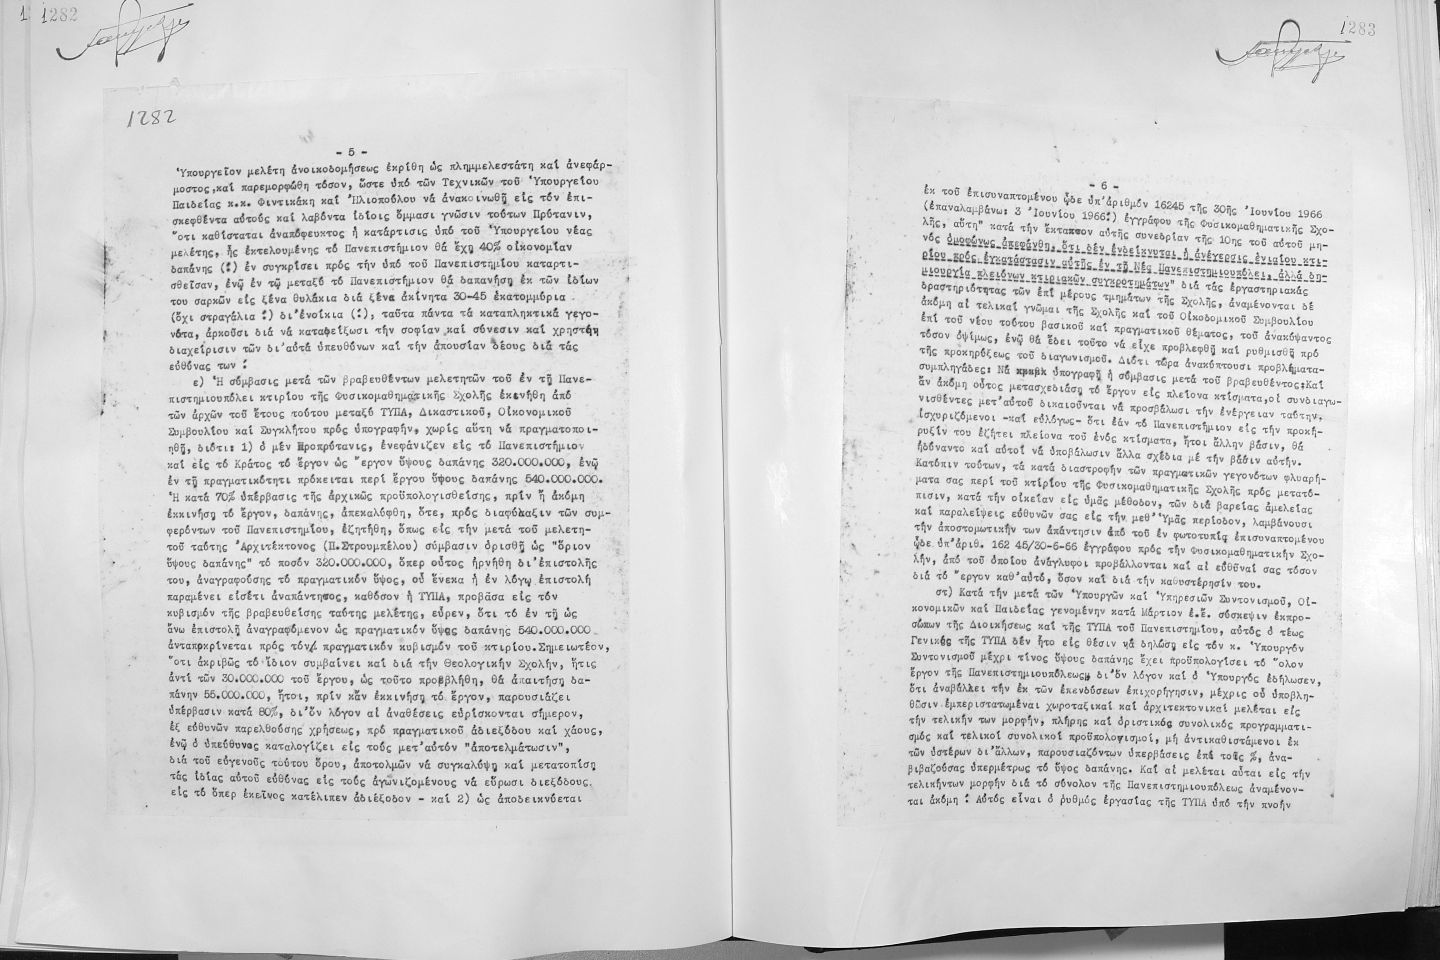 1282
1282
- 5 -
Ὑπουργεῖον μελέτη ἀνοικοδομήσεως ἐκρίθη ὡς πλημμελεστάτη καί ἀνεφάρ-
μοστος,καί παρεμορφώθη τόσον, ὥστε ὑπό τῶν Τεχνικῶν τοῦ Ὑπουργείου
Παιδείας κ.κ. Φιντικάκη καί Ἠλιοπούλου νά ἀνακοινωθῇ εἰς τόν ἐπι-
σκεφθέντα αὐτούς καί λαβόντα ἰδίοις ὄμμασι γνῶσιν τούτων Πρύτανιν,
ὅτι καθίσταται ἀναπόφευκτος ἡ κατάρτισις ὑπό τοῦ Ὑπουργείου νέας
μελέτης, ἧς ἐκτελουμένης τό Πανεπιστήμιον θά ἔχῃ 40% οἰκονομίαν
δαπάνης (!) ἐν συγκρίσει πρός τήν ὑπό τοῦ Πανεπιστημίου καταρτι-
σθεῖσαν, ἐνῷ ἐν τῷ μεταξύ τό Πανεπιστήμιον θά δαπανήσῃ ἐκ τῶν ἰδίων
του σαρκῶν εἰς ξένα θυλάκια διά ξένα ἀκίνητα 30-45 ἑκατομμύρια
(ὄχι στραγάλια !) δι'ἐνοίκια (!), ταῦτα πάντα τά καταπληκτικά γεγο-
νότα, ἀρκοῦσι διά νά καταδείξωσι τήν σοφίαν καί σύνεσιν καί χρηστήν
διαχείρισιν τῶν δι'αὐτά ὑπευθύνων καί τήν ἀπουσίαν δέους διά τάς
εὐθύνας των !
ε) Ἡ σύμβασις μετά τῶν βραβευθέντων μελετητῶν τοῦ ἐν τῇ Πανε-
πιστημιουπόλει κτιρίου τῆς Φυσικομαθηματικῆς Σχολῆς ἐκινήθη ἀπό
τῶν ἀρχῶν τοῦ ἔτους τούτου μεταξύ ΤΥΠΑ, Δικαστικοῦ, Οἰκονομικοῦ
Συμβουλίου καί Συγκλήτου πρός ὑπογραφήν, χωρίς αὕτη νά πραγματοποι-
ηθῇ, διότι: 1) ὁ μέν Προπρύτανις, ἐνεφάνιζεν εἰς τό Πανεπιστήμιον
καί εἰς τό Κράτος τό ἔργον ὡς ἔργον ὕψους δαπάνης 320.000.000, ἐνῷ
ἐν τῇ πραγματικότητι πρόκειται περί ἔργου ὕψους δαπάνης 540.000.000.
Ἡ κατά 70% ὑπέρβασις τῆς ἀρχικῶς προϋπολογισθείσης, πρίν ἤ ἀκόμη
ἐκκινήσῃ τό ἔργον, δαπάνης, ἀπεκαλύφθη, ὅτε, πρός διαφύλαξιν τῶν συμ-
φερόντων τοῦ Πανεπιστημίου, ἐζητήθη, ὅπως εἰς τήν μετά τοῦ μελετη-
τοῦ ταύτης Ἀρχιτέκτονος (Π.Στρουμπέλου) σύμβασιν ὁρισθῇ ὡς "ὅριον
ὕψους δαπάνης" τό ποσόν 320.000.000, ὅπερ οὗτος ἠρνήθη δι'ἐπιστολῆς
του, ἀναγραφούσης τό πραγματικόν ὕψος, οὗ ἕνεκα ἡ ἐν λόγῳ ἐπιστολή
παραμένει εἰσέτι ἀναπάντητος, καθόσον ἡ ΤΥΠΑ, προβᾶσα εἰς τόν
κυβισμόν τῆς βραβευθείσης ταύτης μελέτης, εὗρεν, ὅτι τό ἐν τῇ ὡς
ἄνω ἐπιστολῇ ἀναγραφόμενον ὡς πραγματικόν ὕψος δαπάνης 540.000.000
ἀνταποκρίνεται πρός τόν πραγματικόν κυβισμόν τοῦ κτιρίου.Σημειωτέον,
ὅτι ἀκριβῶς τό ἴδιον συμβαίνει καί διά τήν Θεολογικήν Σχολήν, ἥτις
ἀντί τῶν 30.000.000 τοῦ ἔργου, ὡς τοῦτο προεβλήθη, θά ἀπαιτήσῃ δα-
πάνην 55.000.000, ἤτοι, πρίν κἄν ἐκκινήσῃ τό ἔργον, παρουσιάζει
ὑπέρβασιν κατά 80%, δι'ὅν λόγον αἱ ἀναθέσεις εὑρίσκονται σήμερον,
ἐξ εὐθυνῶν παρελθούσης χρήσεως, πρό πραγματικοῦ ἀδιεξόδου καί χάους,
ἐνῷ ὁ ὑπεύθυνος καταλογίζει εἰς τούς μετ'αὐτόν "ἀποτελμάτωσιν",
διά τοῦ εὐγενοῦς τούτου ὅρου, ἀποτολμῶν νά συγκαλύψῃ καί μετατοπίσῃ
τάς ἰδίας αὑτοῦ εὐθύνας εἰς τούς ἀγωνιζομένους νά εὕρωσι διεξόδους
εἰς τό ὅπερ ἐκεῖνος κατέλιπεν ἀδιέξοδον - καί 2) ὡς ἀποδεικνύεται
1283
- 6 -
ἐκ τοῦ ἐπισυναπτομένου ὧδε ὑπ'ἀριθμόν 16245 τῆς 30ῆς Ἰουνίου 1966
(ἐπαναλαμβάνω: 3 Ἰουνίου 1966!) ἐγγράφου τῆς Φυσικομαθηματικῆς Σχο-
λῆς, αὕτη" κατά τήν ἔκτακτον αὐτῆς συνεδρίαν τῆς 10ης τοῦ αὐτοῦ μη-
νός ὁμοφώνως ἀπεφάνθη, ὅτι δέν ἐνδείκνυται ἡ ἀνέγερσις ἑνιαίου κτι-
ρίου πρός ἐγκατάστασιν αὐτῆς ἐν τῇ Νέᾳ Πανεπιστημιουπόλει, ἀλλά δη-
μιουργία πλειόνων κτιριακῶν συγκροτημάτων" διά τάς ἐργαστηριακάς
δραστηριότητας τῶν ἐπί μέρους τμημάτων τῆς Σχολῆς, ἀναμένονται δέ
ἀκόμη αἱ τελικαί γνῶμαι τῆς Σχολῆς καί τοῦ Οἰκοδομικοῦ Συμβουλίου
ἐπί τοῦ νέου τούτου βασικοῦ καί πραγματικοῦ θέματος, τοῦ ἀνακύψαντος
τόσον ὀψίμως, ἐνῷ θά ἔδει τοῦτο νά εἶχε προβλεφθῆ καί ρυθμισθῆ πρό
τῆς προκηρύξεως τοῦ διαγωνισμοῦ. Διότι τώρα ἀνακύπτουσι προβλήματα-
συμπληγάδες: Νά ὑπογραφῇ ἡ σύμβασις μετά τοῦ βραβευθέντος;Καί
ἄν ἀκόμη οὗτος μετασχεδιάσῃ τό ἔργον εἰς πλείονα κτίσματα,οἱ συνδιαγω-
νισθέντες μετ'αὐτοῦ δικαιοῦνται νά προσβάλωσι τήν ἐνέργειαν ταύτην,
ἰσχυριζόμενοι -καί εὐλόγως- ὅτι ἐάν τό Πανεπιστήμιον εἰς τήν προκή-
ρυξίν του ἐζήτει πλείονα τοῦ ἑνός κτίσματα, ἤτοι ἄλλην βάσιν, θά
ἠδύναντο καί αὐτοί νά ὑποβάλωσιν ἄλλα σχέδια μέ τήν βάσιν αὐτήν.
Κατόπιν τούτων, τά κατά διαστροφήν τῶν πραγματικῶν γεγονότων φλυαρή-
ματα σας περί τοῦ κτιρίου τῆς Φυσικομαθηματικῆς Σχολῆς πρός μετατό-
πισιν, κατά τήν οἰκείαν εἰς ὑμᾶς μέθοδον, τῶν διά βαρείας ἀμελείας
καί παραλείψεις εὐθυνῶν σας εἰς τήν μεθ'Ὑμᾶς περίοδον, λαμβάνουσι
τήν ἀποστομωτικήν των ἀπάντησιν ἀπό τοῦ ἐν φωτοτυπίᾳ ἐπισυναπτομένου
ὧδε ὑπ'ἀριθ. 162 45/30-6-66 ἐγγράφου πρός τήν Φυσικομαθηματικήν Σχο-
λήν, ἀπό τοῦ ὁποίου ἀνάγλυφοι προβάλλονται καί αἱ εὐθῦναί σας τόσον
διά τό ἔργον καθ'αὑτό, ὅσον καί διά τήν καθυστέρησίν του.
στ) Κατά τήν μετά τῶν Ὑπουργῶν καί Ὑπηρεσιῶν Συντονισμοῦ, Οἰ-
κονομικῶν καί Παιδείας γενομένην κατά Μάρτιον ἐ.ἔ. σύσκεψιν ἐκπρο-
σώπων τῆς Διοικήσεως καί τῆς ΤΥΠΑ τοῦ Πανεπιστημίου, αὐτός ὁ τέως
Γενικός τῆς ΤΥΠΑ δέν ἦτο εἰς θέσιν νά δηλώσῃ εἰς τόν κ. Ὑπουργόν
Συντονισμοῦ μέχρι τίνος ὕψους δαπάνης ἔχει προϋπολογίσει τό ὅλον
ἔργον τῆς Πανεπιστημιουπόλεως, δι'ὅν λόγον καί ὁ Ὑπουργός ἐδήλωσεν,
ὅτι ἀναβάλλει τήν ἐκ τῶν ἐπενδύσεων ἐπιχορήγησιν, μέχρις οὗ ὑποβλη-
θῶσιν ἐμπεριστατωμέναι χωροταξικαί καί ἀρχιτεκτονικαί μελέται εἰς
τήν τελικήν των μορφήν, πλήρης καί ὁριστικός συνολικός προγραμματι-
σμός καί τελικοί συνολικοί προϋπολογισμοί, μή ἀντικαθιστάμενοι ἐκ
τῶν ὑστέρων δι'ἄλλων, παρουσιαζόντων ὑπερβάσεις ἐπί τοῖς %, ἀνα-
βιβαζούσας ὑπερμέτρως τό ὕψος δαπάνης. Καί αἱ μελέται αὗται εἰς τήν
τελικήντων μορφήν διά τό σύνολον τῆς Πανεπιστημιουπόλεως ἀναμένον-
ται ἀκόμη ! Αὐτός εἶναι ὁ ρυθμός ἐργασίας τῆς ΤΥΠΑ ὑπό τήν πνοήν